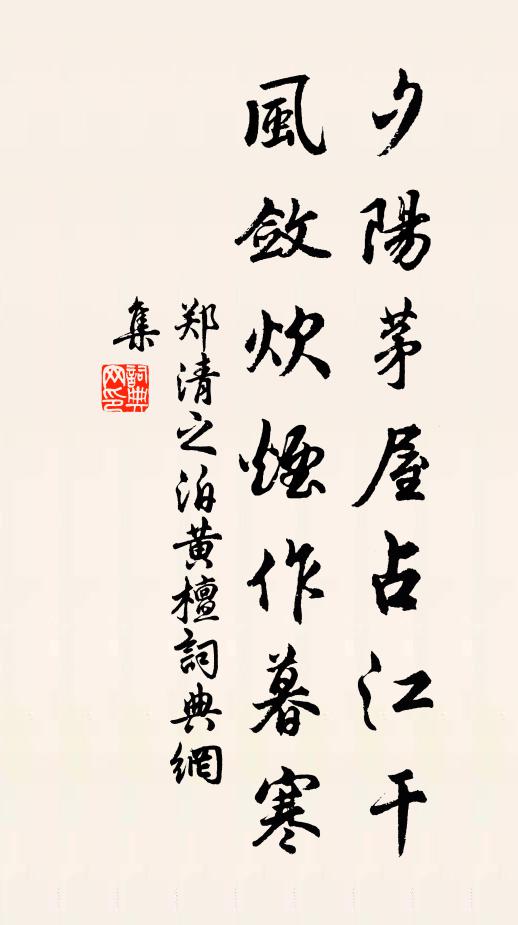 夕陽茅屋占江干
風斂炊煙作暮寒
郑清之泊黄檀詞典網
集
詞典网印